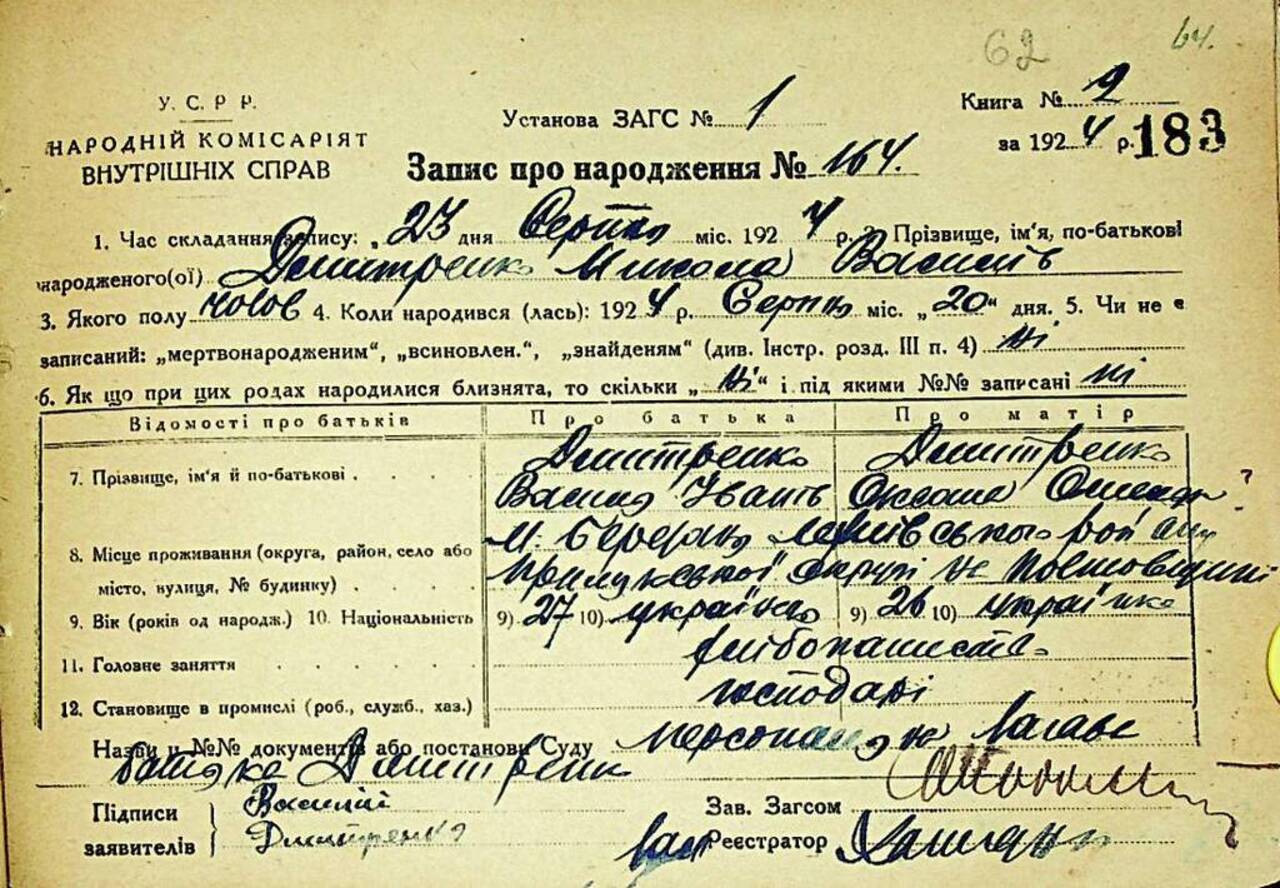 62 64.
У. С. Р Р.
НАРОДНІЙ КОМІСАРІЯТ
ВНУТРІШНІХ СПРАВ
Установа ЗАГС № 1
Книга № 2
за 1924 р. 183
Запис про народження № 164.
1. Час складання запису: „23 дня Серпня міс. 1924 р. 2. Прізвище, ім'я, по-батькові
народженого(ої) Дмитренко Микола Василів
3. Якого полу чолов 4. Коли народився (лась): 1924 р. Серпня міс. „20“ дня. 5. Чи не є
записаний: „мертвонародженим“, „всиновлен.“, „знайденям“ (див. Інстр. розд. III п. 4) Ні
6. Як що при цих родах народилися близнята, то скільки „Ні“ і під якими №№ записані ні
Відомості про батьків Про батька Про матір
7. Прізвище, ім'я й по-батькові . . . . Дмитренко Дмитренко
Василь Іванів Оксана ?
8. Місце проживання (округа, район, село або м. Березань
місто, вулиця, № будинку) . . . . Прилуцької округи на Полтавщині
9. Вік (років од народж.) 10. Національність 9) 27 10) українець 9) 26 10) українка
11. Головне заняття . . . . .
12. Становище в промислі (роб., служб., хаз.) господарі
Назви й №№ документів або постанови Суду
батька Дмитренко
Підписи
заявителів
Василій
Дмитренко
Зав. Загсом
Реєстратор